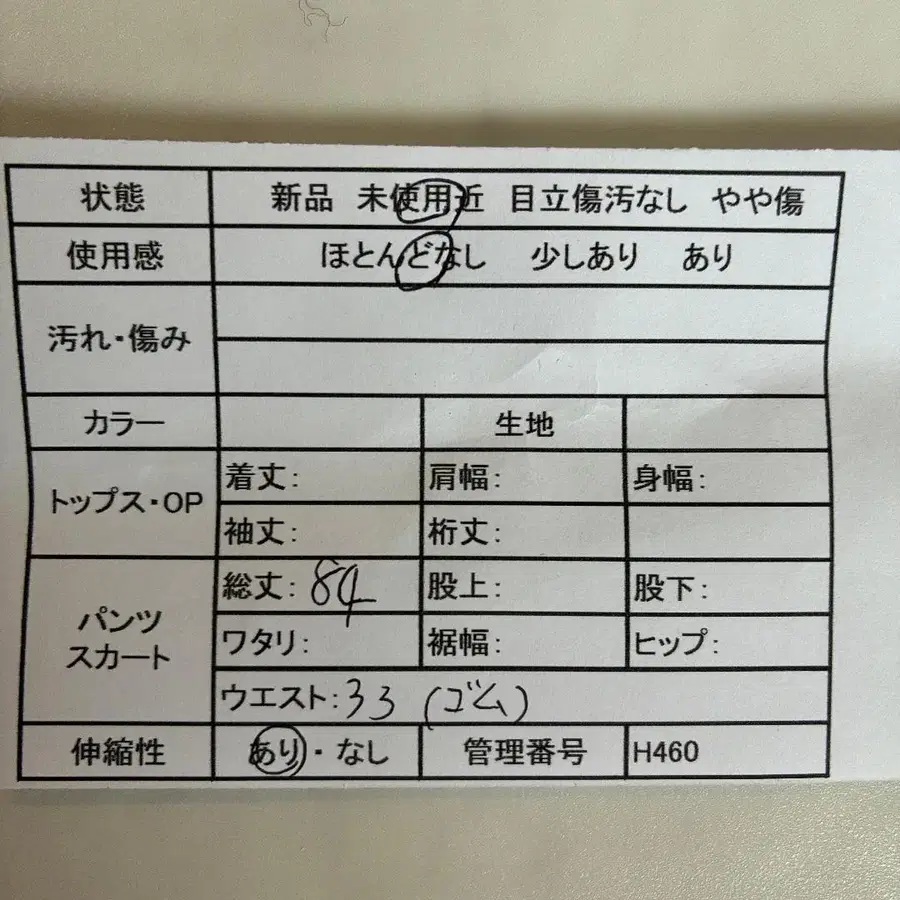 状態 新品 未使用近 目立傷汚なし やや傷
使用感 ほとんどなし 少しあり あり
汚れ・傷み
カラー 生地
トップス・OP
着丈: 肩幅: 身幅:
袖丈: 裄丈:
パンツ
スカート
総丈: 84 股上: 股下:
ワタリ: 裾幅: ヒップ:
ウエスト: 33 (ゴム)
伸縮性 あり・なし 管理番号 H460